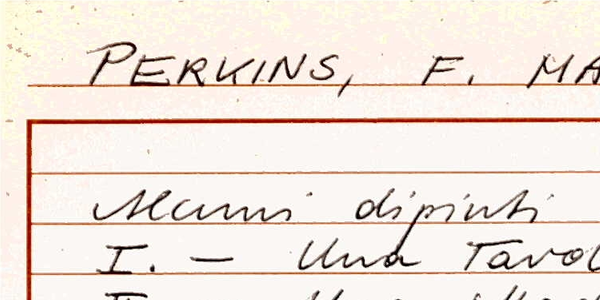 PERKINS, F. MA
Alcuni dipinti
I. — Una Tavol